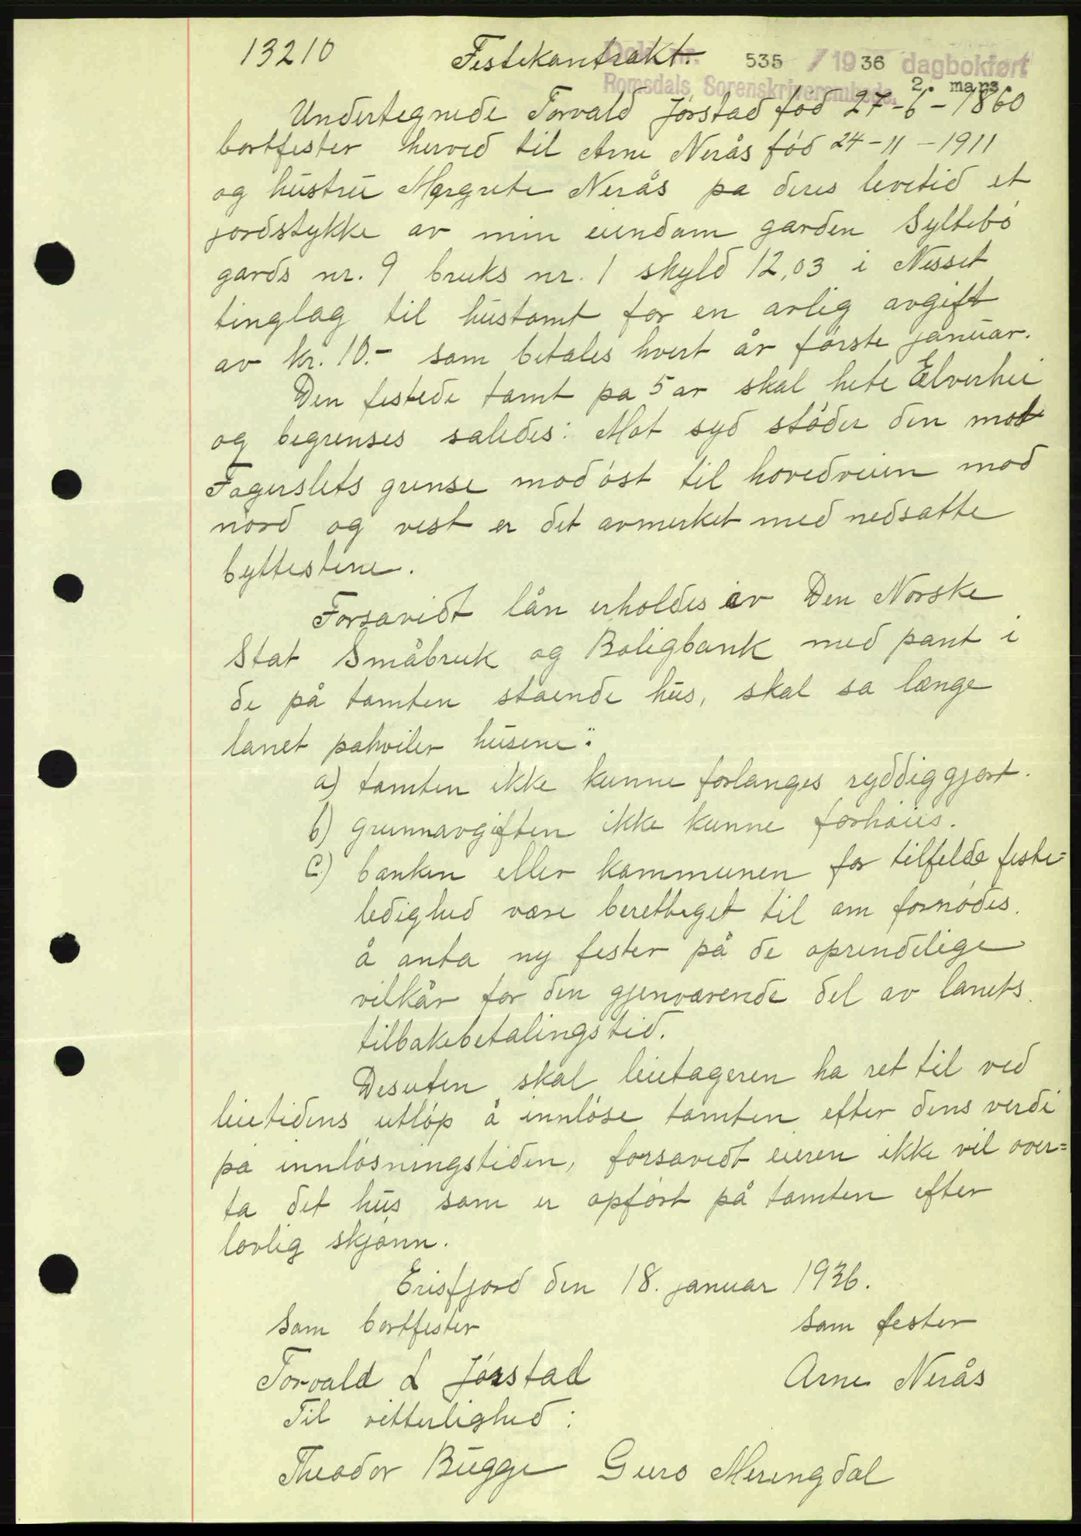 13210 Festekontrakt.
Dok. nr. 535 / 1936 dagbokført
Romsdals Sorenskriverembede, 2. mars.
Undertegnede Torvald Jørstad fød 27-6-1860
bortfester herved til Arne Nerås fød 24-11-1911
og hustru Margrete Nerås pa deres levetid et
jordstykke av min eiendom garden Syltebø
gards nr. 9 bruks nr. 1 skyld 12,03 i Nesset
tinglag til hustomt for en arlig avgift
av kr. 10.- som betales hvert år første januar.
Den festede tomt pa 5 ar skal hete Elverhei
og begrenses saledes: Mot syd støder den mot
Fagerslets grense mod øst til hovedveien mod
nord og vest er det avmerket med nedsatte
byttestene.
Forsavidt lån erholdes av Den Norske
Stat Småbruk og Boligbank med pant i
de på tomten stående hus, skal sa længe
lanet pahviler husene:
a) tomten ikke kunne forlanges ryddiggjort.
b) grunnavgiften ikke kunne forhøies.
c) banken eller kommunen for tilfelde feste=
ledighed være berettiget til om fornødes.
å anta ny fester på de oprindelige
vilkår for den gjenværende del av lanets
tilbakebetalingstid.
Desuten skal leietageren ha ret til ved
leietidens utløp å innløse tomten efter dens verdi
pa innløsningstiden, forsavidt eieren ikke vil over=
ta det hus som er opført på tomten efter
lovlig skjønn.
Erisfjord den 18. januar 1936.
Som bortfester Som fester
Torvald L Jørstad Arne Nerås
Til vitterlighed:
Theodor Bugge Guro Meringdal